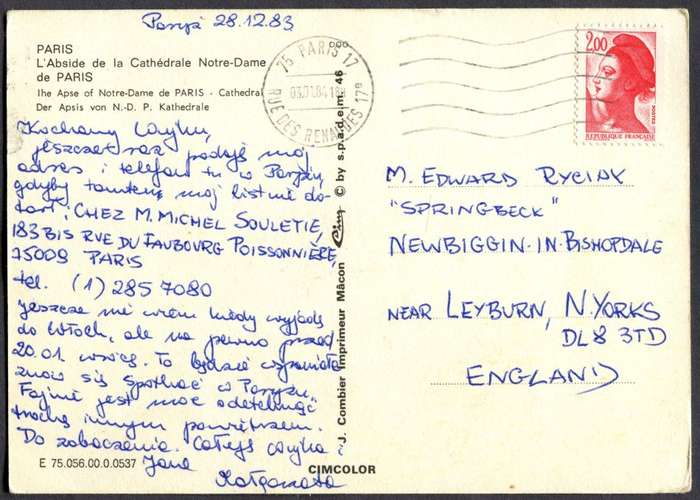 Paryż 28.12.83
PARIS
L'Abside de la Cathédrale Notre-Dame
de PARIS
The Apse of Notre-Dame de PARIS - Cathedral
Der Apsis von N.-D. P. Kathedrale
Kochany Wujku,
jeszcze raz podaję mój
adres i telefon tu w Paryżu,
gdyby tamten mój list nie do-
tarł: CHEZ M. MICHEL SOULETIE,
183 BIS RUE DU FAUBOURG POISSONNIÈRE,
75009 PARIS
tel. (1) 285 7080
jeszcze nie wiem kiedy wyjadę
do Włoch, ale na pewno przed
20.01 wrócę. To będzie wspaniale
znów się spotkać w Paryżu.
Fajnie jest móc odetchnąć
trochę innym powietrzem.
Do zobaczenia. Całuję Wujka i
Jane
Małgorzata
E 75.056.00.0.0537
CIMCOLOR
J. Combier Imprimeur Mâcon
© by s.p.a.d.e.m. 46
75 PARIS 17
RUE DES RENAUDES 17e
2,00
POSTES
REPUBLIQUE FRANÇAISE
M. EDWARD RYCIAK
"SPRINGBECK"
NEWBIGGIN-IN-BISHOPDALE
NEAR LEYBURN, N. YORKS
DL8 3TD
ENGLAND